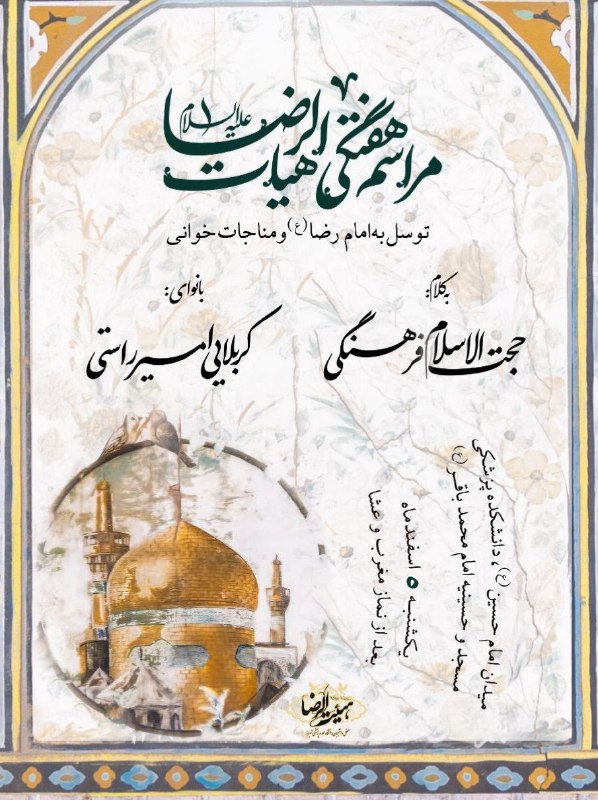 مراسم هفتگی هیات الرضا علیه السلام
توسل به امام رضا (ع) و مناجات خوانی
به کلام:
حجت الاسلام فرهنگی
بانوای:
کربلایی امیر راستی
میدان امام حسین (ع)، دانشکده پزشکی
مسجد و حسینیه امام محمد باقر (ع)
یکشنبه ۵ اسفند ماه
بعد از نماز مغرب و عشا
هیئت الرضا